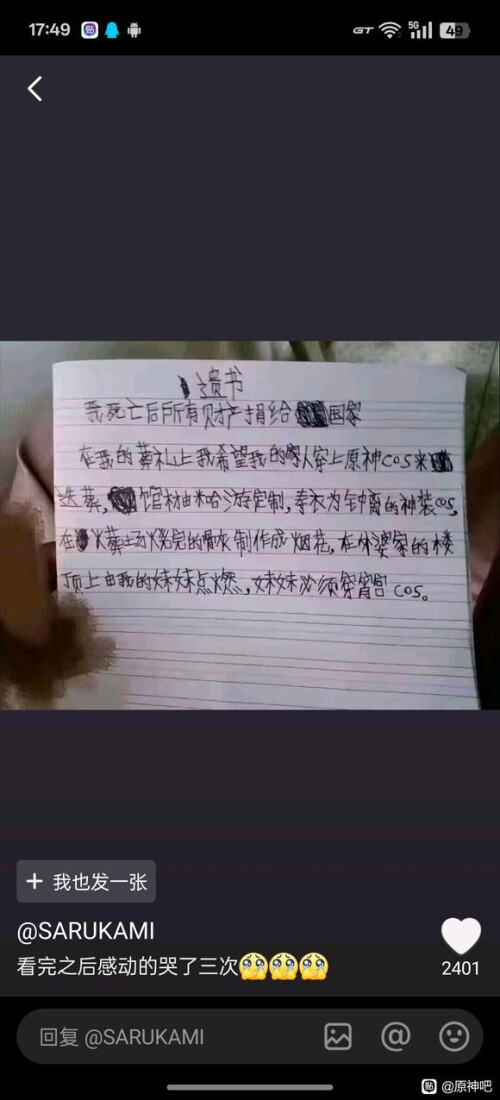 17:49
GT 5G 49
遗书
我死亡后所有财产捐给国家
在我的葬礼上我希望我的家人穿上原神cos来
送葬,馆材由米哈游定制,寿衣为钟离的神装cos,
在火葬场烧完的骨灰制作成烟花,在外婆家的楼
顶上由我的妹妹点燃,妹妹必须穿宵宫cos。
+ 我也发一张
@SARUKAMI
看完之后感动的哭了三次🥹🥹🥹
2401
回复 @SARUKAMI
贴 @原神吧